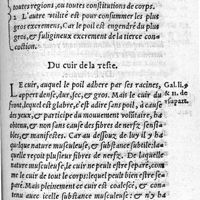 toutes regions, ou toutes constitutions de corps.
2 L'autre vtilité est pour consummer les plus
gros excremens, Car le poil est engendré du plus
gros, & fuligineux excrement de la tierce con-
coction.
Du cuir de la teste.
LE cuir, auquel le poil adhere par ses racines,
appert dense, dur, sec, & gros. Mais le cuir du
front, lequel est glabre, c'est à dire sans poil, à cause
des yeux, & participe du mouuement volütaire, ha
bonde, & non sans cause des fibres de nerfz sensi-
bles, & manifestes. Car au dessouz de luy il y ha
quelque nature musculeuse, & substance subtile: la-
quelle reçoit plusieurs fibres de nerfz. De laquelle
nature musculeuse, le cuir ne peult estre separé, com-
me le cuir de tout le corps: lequel peult bien estre se-
paré. Mais pleinement ce cuir est coalescé, & con-
ioinct auec toute la substance musculeuse, & est
Gal. li. 9
& 11. de
vsu part.